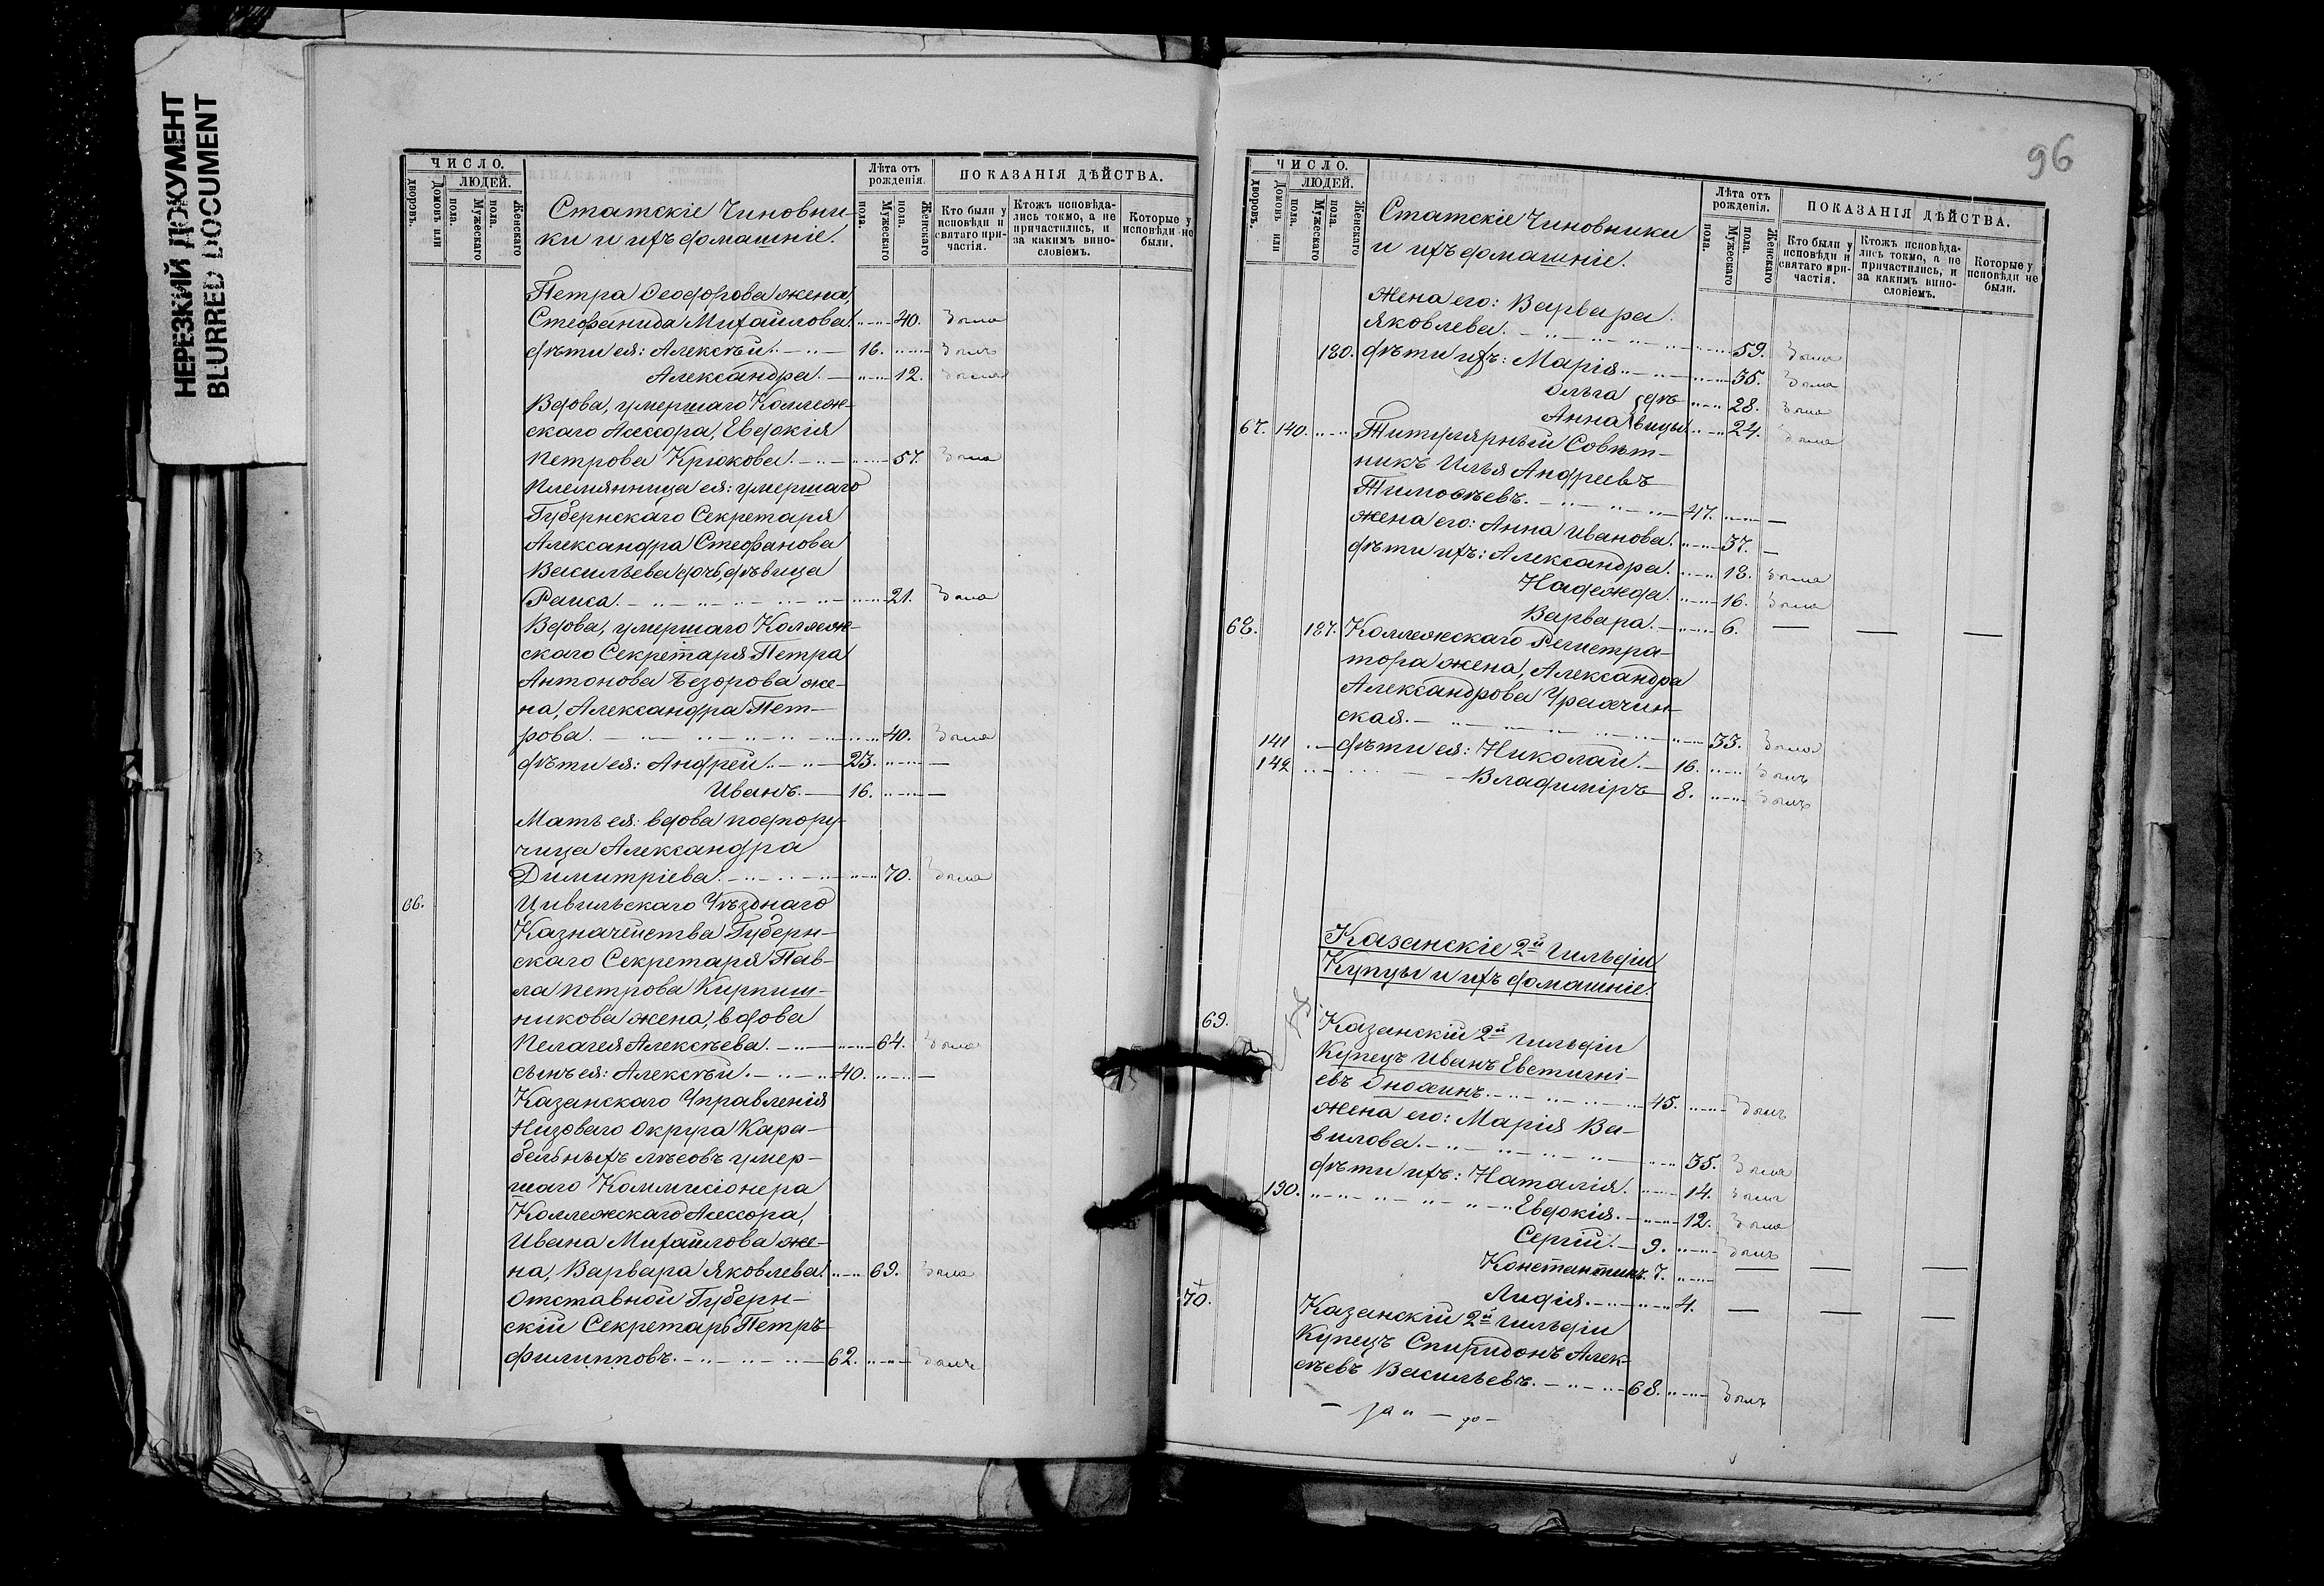 НЕРЕЗКИЙ ДОКУМЕНТ
BLURRED DOCUMENT
ЧИСЛО.
Домовъ или дворовъ.
ЛЮДЕЙ.
Мужескаго пола.
Женскаго пола.
Статскіе Чиновни-
ки и ихъ домашніе.
Лѣта отъ рожденія.
Мужескаго пола.
Женскаго пола.
ПОКАЗАНІЯ ДѢЙСТВА.
Кто были у исповѣди и святаго причастія.
Ктожъ исповѣда-
лись токмо, а не
причастились, и
за какимъ вино-
словіемъ.
Которые у исповѣди не были.
Петра Ѳеодорова жена,
Стефанида Михаилова. 40. была
дѣти ея: Алексѣй. 16. былъ
Александра. 12. была
Вдова, умершаго Коллеж-
скаго Ассесора, Евдокія
Петрова Крюкова. 57. была
Племянница ея: умершаго
Губернскаго Секретаря
Александра Стефанова
Васильева дочь, дѣвица
Раиса. 21. была
Вдова, умершаго Коллеж-
скаго Секретаря Петра
Антонова Безорова же-
на, Александра Пет-
рова. 40. была
дѣти ея: Андрей. 23. —
Иванъ. 16. —
Мать ея: вдова подпору-
чица Александра
Димитріева. 70. была
66. Цивильскаго Уѣзднаго
Казначейства Губерн-
скаго Секретаря Пав-
ла Петрова Кирпиш-
никова жена, вдова
Пелагея Алексѣева. 64. была
сынъ ея: Алексѣй. 40. —
Казанскаго Управленія
Низоваго Округа Кара-
бельныхъ лѣсовъ умер-
шаго Коммисіонера
Коллежскаго Ассесора,
Ивана Михаилова же-
на, Варвара Яковлева. 69. была
Отставной Губерн-
скій Секретарь Петръ
Филипповъ. 62. былъ
96
ЧИСЛО.
Домовъ или дворовъ.
ЛЮДЕЙ.
Мужескаго пола.
Женскаго пола.
Статскіе Чиновники
и ихъ домашніе.
Лѣта отъ рожденія.
Мужескаго пола.
Женскаго пола.
ПОКАЗАНІЯ ДѢЙСТВА.
Кто были у исповѣди и святаго причастія.
Ктожъ исповѣда-
лись токмо, а не
причастились, и
за какимъ вино-
словіемъ.
Которые у исповѣди не были.
Жена его: Варвара
Яковлева. 59. была
180. дѣти ихъ: Марія. 35. была
Ольга 28. была
Анна дѣвицы 24. была
67. 140. Титулярный Совѣт-
никъ Илья Андреевъ
Тимоѳеевъ. 47. —
Жена его: Анна Иванова. 37. —
дѣти ихъ: Александра. 18. была
Надежда. 16. была
Варвара. 6. — — —
68. 187. Коллежскаго Регистра-
тора жена, Александра
Александрова
ская. 33. была
141 дѣти ея: Николай. 16. былъ
142 Владиміръ 8. былъ
Казанскіе 2й Гильдіи
Купцы и ихъ домашніе.
69. Казанскій 2й Гильдіи
Купецъ Иванъ
евъ 45. былъ
Жена его: Марія Ва-
вилова. 35. была
дѣти ихъ: Наталія. 14. была
190. Евдокія. 12. была
Сергій. 9. былъ
Константинъ. 7. — — —
Лидія. 4. — — —
70. Казанскій 2й Гильдіи
Купецъ Спиридонъ Алек-
сѣевъ Васильевъ. 68. былъ